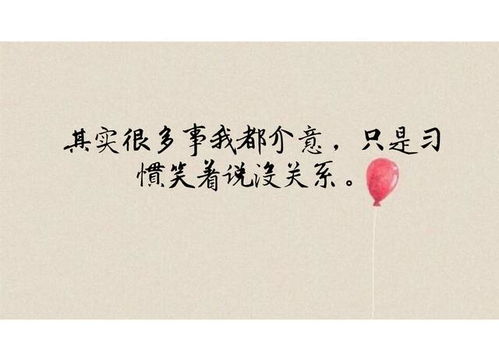 其实很多事我都介意，只是习
惯笑着说没关系。